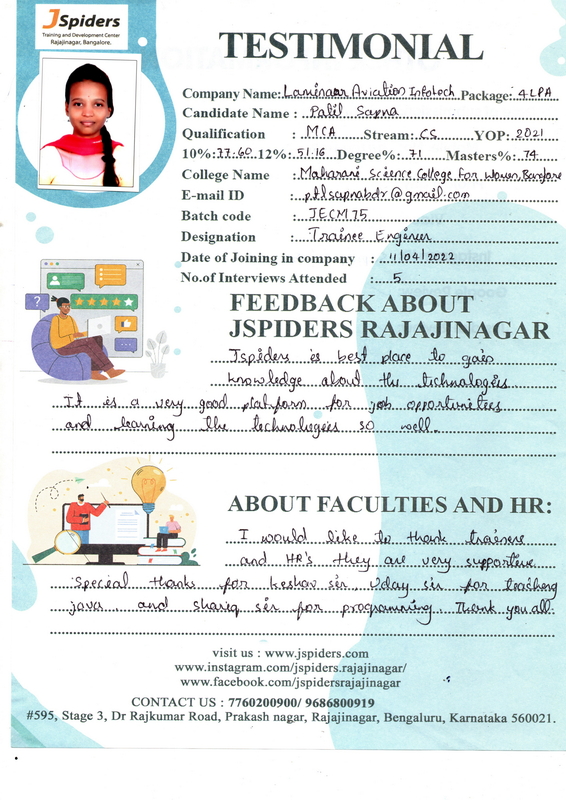 JSpiders
Training and Development Center
Rajajinagar, Bangalore.
TESTIMONIAL
Company Name: Laminaar Aviation Infotech Package: 4 LPA
Candidate Name : Patil Sapna
Qualification : MCA Stream: CS YOP: 2021
10%: 77.60 12%: 51.16 Degree%: 71 Masters%: 74
College Name : Maharani Science College For Women Banglore
E-mail ID : ptlsapnabdr@gmail.com
Batch code : JECM75
Designation : Trainee Engineer
Date of Joining in company : 11/04/2022
No.of Interviews Attended : 5
FEEDBACK ABOUT
JSPIDERS RAJAJINAGAR
Jspiders is best place to gain
knowledge about the technologies
It is a very good platform for job opportunities
and learning the technologies so well.
ABOUT FACULTIES AND HR:
I would like to thank trainers
and HR's they are very supportive
Special thanks for keshav sir, Uday sir for teaching
java and shariq sir for programming. Thank you all.
visit us : www.jspiders.com
www.instagram.com/jspiders.rajajinagar/
www.facebook.com/jspidersrajajinagar
CONTACT US : 7760200900/ 9686800919
#595, Stage 3, Dr Rajkumar Road, Prakash nagar, Rajajinagar, Bengaluru, Karnataka 560021.